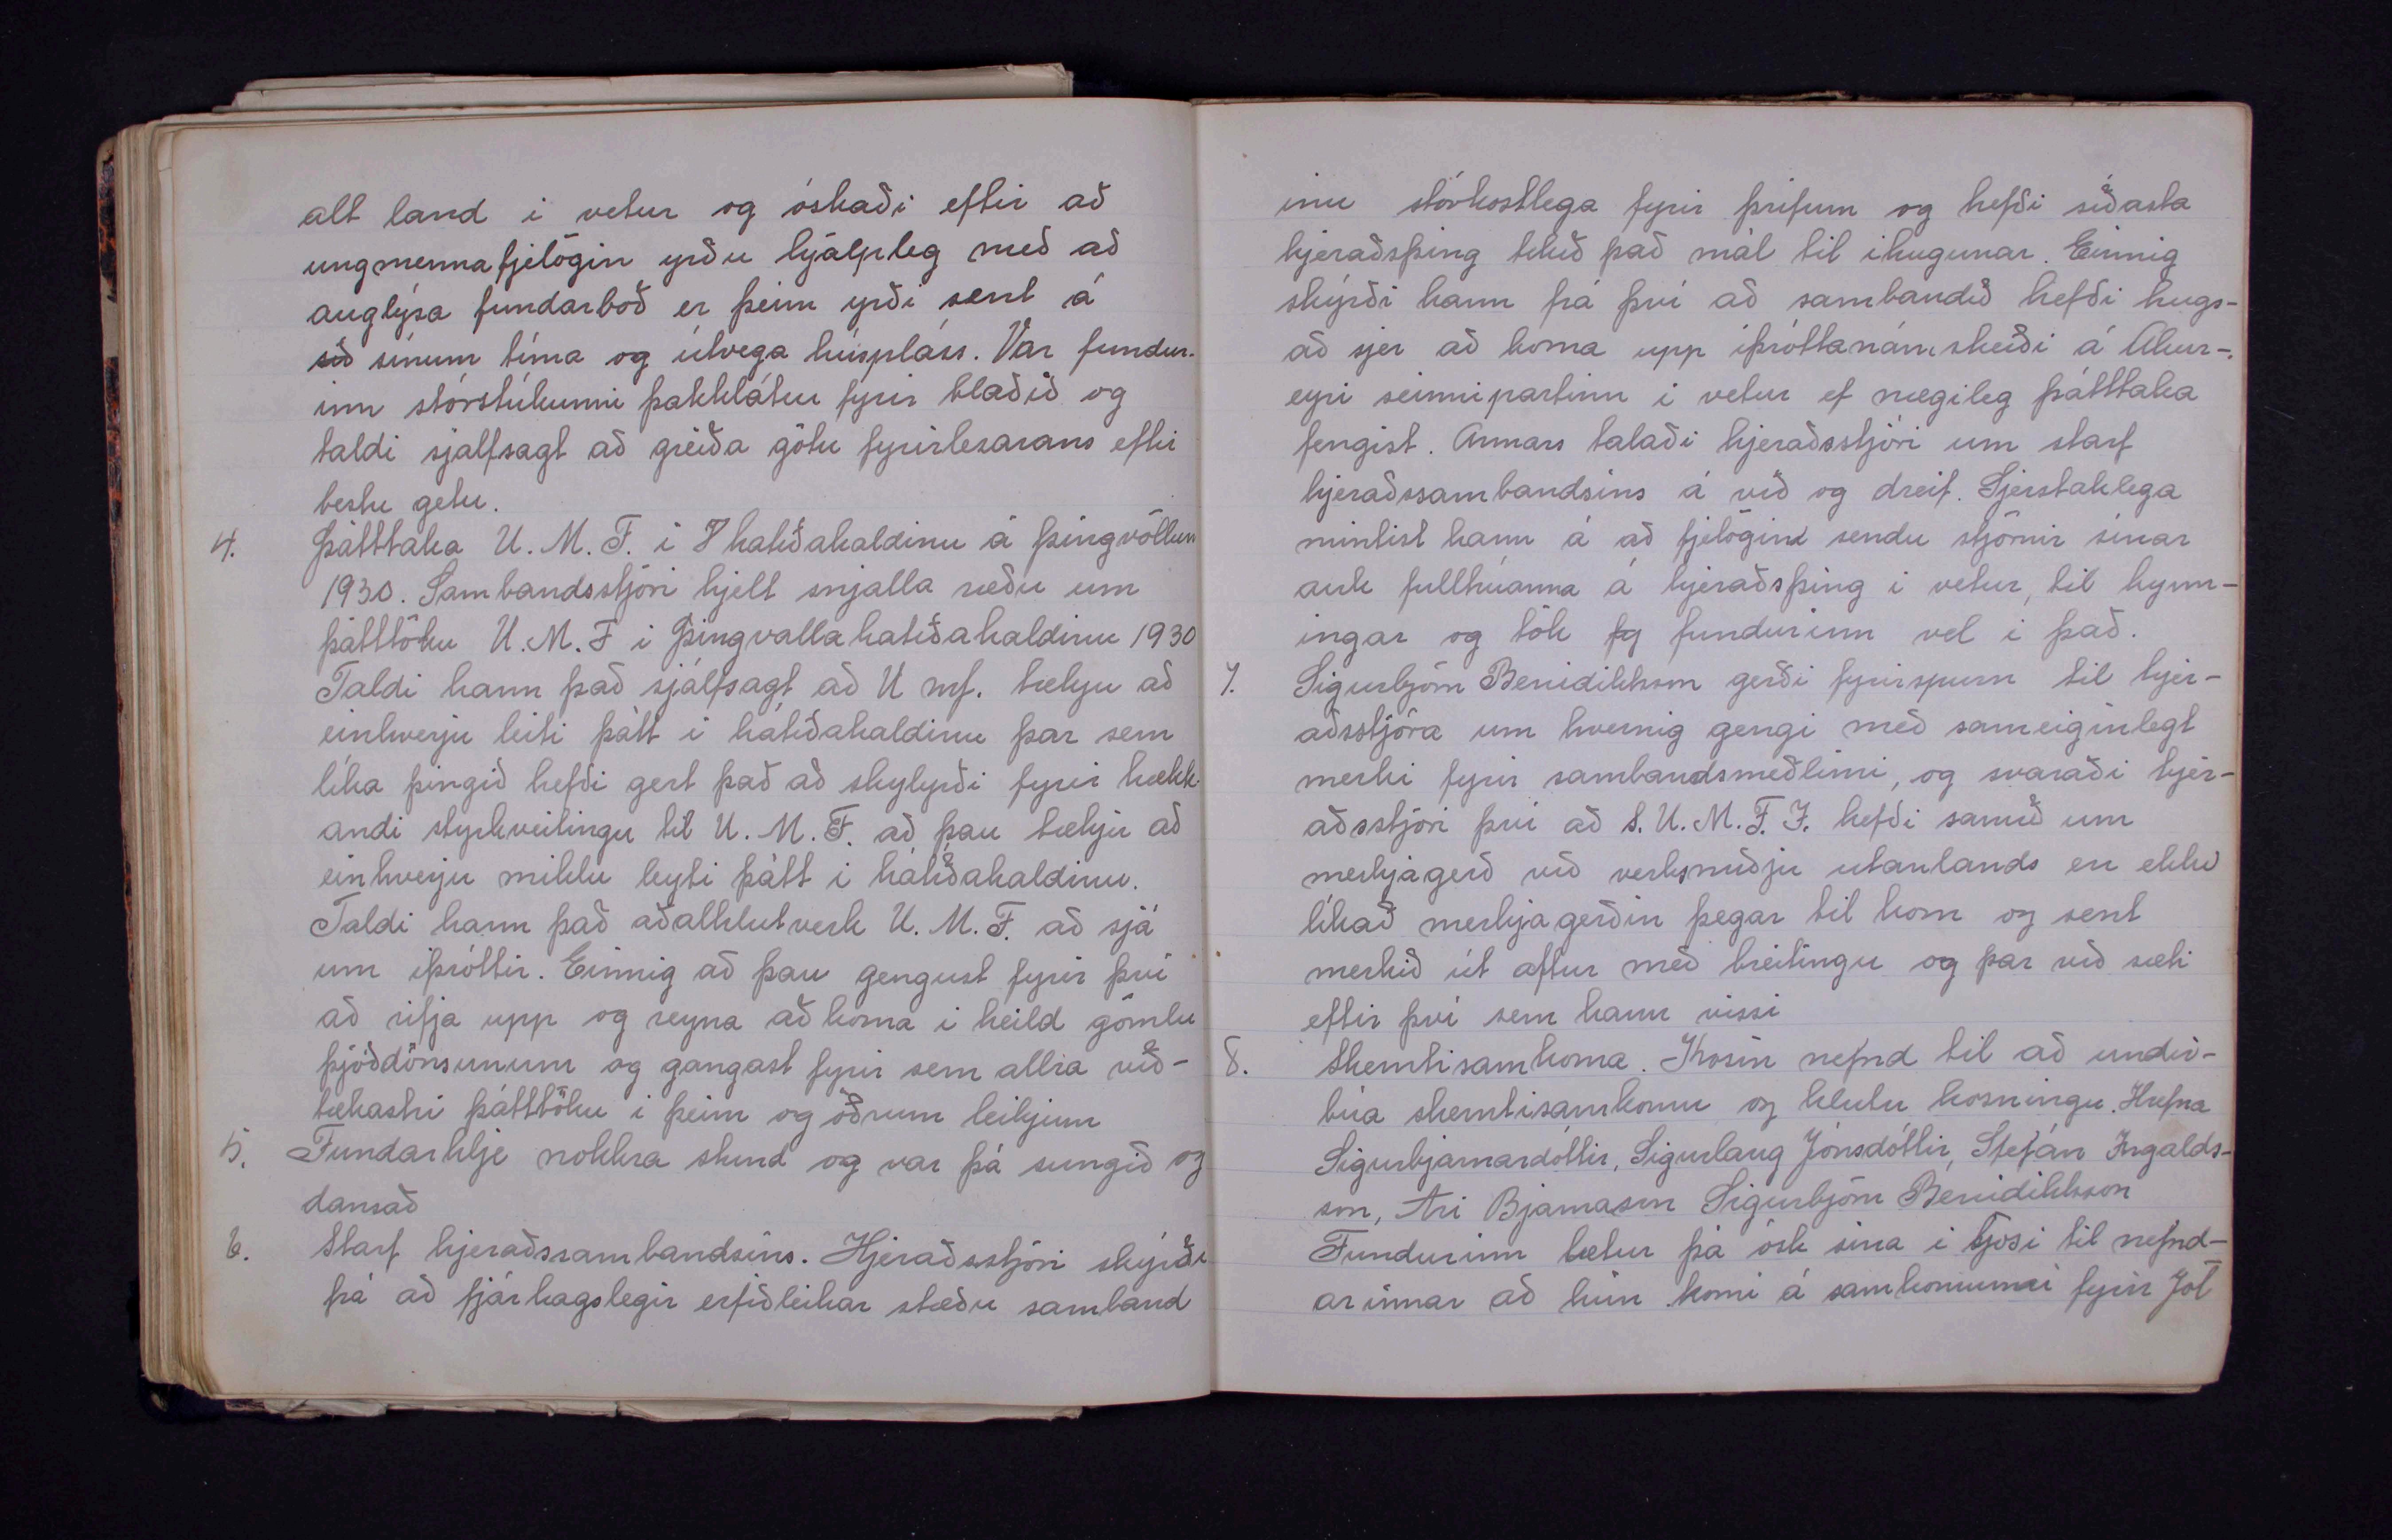 alt land i vetur og óskaði eftir að
ungmennafjelögin yrðu hjálpleg með að
auglýsa fundarboð er þeim yrði sent á
sið sínum tíma og útvega húspláss. Var fundur-
inn stórstúkunni þakklátur fyrir blaðið og
taldi sjálfsagt að greiða götu fyrirlesarans eftir
bestu getu.
4. Þátttaka U. M. F. i Hhatíðahaldinu á þingvöllum
1930. Sambandsstjóri hjelt snjalla ræðu um
þátttöku U. M. F i Þingvallahatíðahaldinu 1930
Taldi hann það sjálfsagt að U mf. tækju að
einhverju leiti þátt i hátíðahaldinu þar sem
líka þingið hefði gert það að skylyrði fyrir hækk-
andi styrkveitingu til U. M. F. að þau tækju að
einhverju miklu leyti þátt i hátíðahaldinu.
Taldi hann það aðalhlutverk U. M. F. að sjá
um iþróttir. Einnig að þau gengust fyrir því
að rifja upp og reyna að koma i heild gömlu
þjóðdönsunum og gangast fyrir sem allra við-
tækastri þátttöku i þeim og öðrum leikjum
5. Fundarhlje nokkra stund og var þá sungið og
dansað
6. Starf hjeraðssambandsins. Hjeraðsstjóri skýrði
frá að fjárhagslegir erfiðleikar stæðu samband
inu stórkostlega fyrir þrifum og hefði síðasta
hjeraðsþing tekið það mál til ihugunar. Einnig
skýrði hann frá því að sambandið hefði hugs-
að sjer að koma upp iþróttanámskeiði á Akur-
eyri seinnipartinn i vetur ef nægileg þátttaka
fengist. Annars talaði hjeraðsstjóri um starf
hjeraðssambandsins á við og dreif. Sjerstaklega
mintist hann á að fjelögind sendu stjórnir sínar
auk fulltrúanna á hjeraðsþing i vetur, til kynn-
ingar og tók fundurinn vel i það.
7. Sigurbjörn Benidiktsson gerði fyrirspurn til hjer-
aðsstjóra um hvernig gengi með sameiginlegt
merki fyrir sambandsmeðlimi, og svaraði hjer-
aðsstjóri því að S. U. M. F. I. hefði samið um
merkjagerð við verksmiðju utanlands en ekki
líkað merkjagerðin þegar til kom og sent
merkið út aftur með breitingu og þar við sæti
eftir því sem hann vissi
8. Skemtisamkoma. Kosin nefnd til að undir-
búa skemtisamkomu og hlutu kosningu. Hrefna
Sigurbjarnardóttir, Sigurlaug Jónsdóttir, Stefán Ingalds-
son, Ari Bjarnason Sigurbjörn Benidiktsson
Fundurinn lætur þá ósk sína i ljósi til nefnd-
arinnar að hún komi á samkomunni fyrir Jól